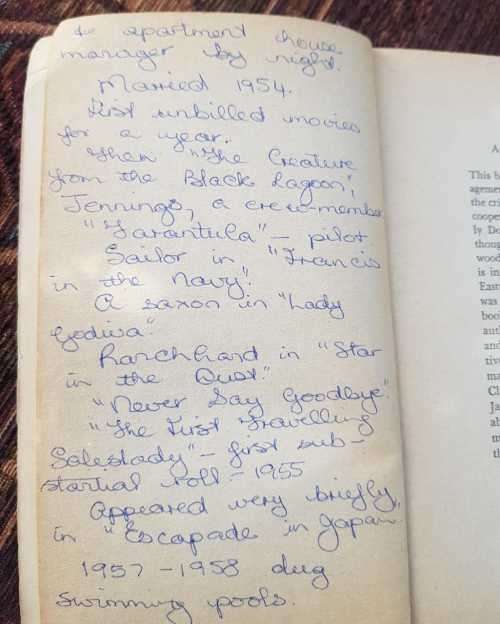 & apartment house
manager by night.
Married 1954.
First unbilled movies
for a year.
Then "The Creature
from the Black Lagoon",
Jennings, a crew-member
"Tarantula" – pilot
Sailor in "Francis
in the Navy".
A saxon in "Lady
Godiva".
Ranchhand in "Star
in the Dust."
"Never Say Goodbye".
"The First Travelling
Saleslady" – first sub-
stantial roll – 1955
Appeared very briefly,
in "Escapade in Japan
1957 – 1958 dug
swimming pools.
A
This b
agemen
the cri
cooper
ly De
thoug
wood
is in
East
was
book
auth
and
tive
ma
Cl
Ja
ab
m
th